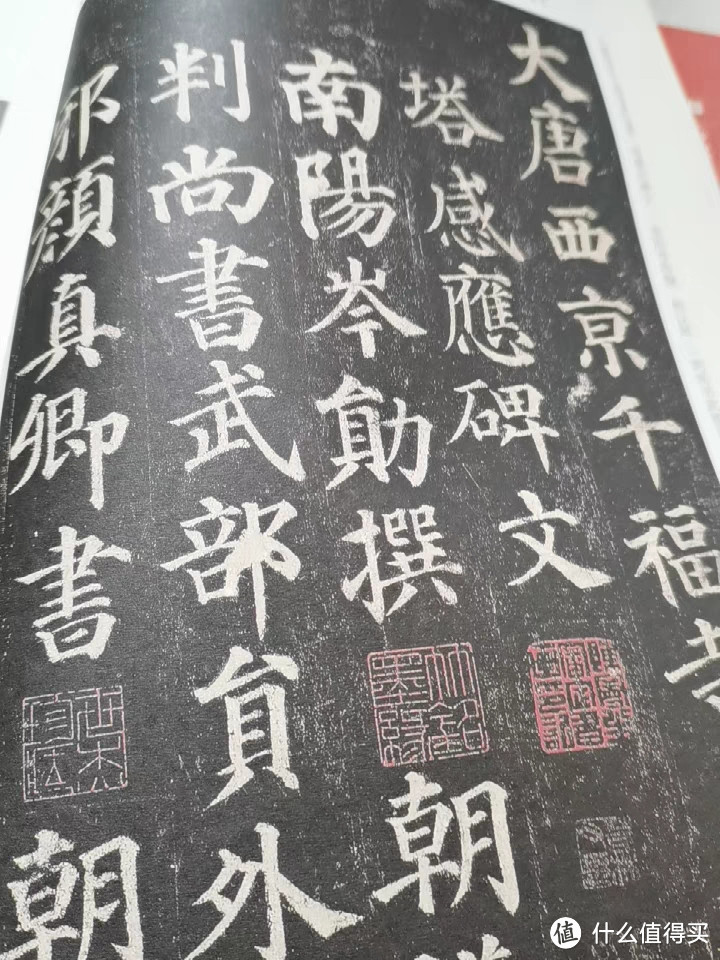 大唐西京千福寺
塔感應碑文
南陽岑勛撰朝
判尚書武部員外
邪顏真卿書朝
值 什么值得买